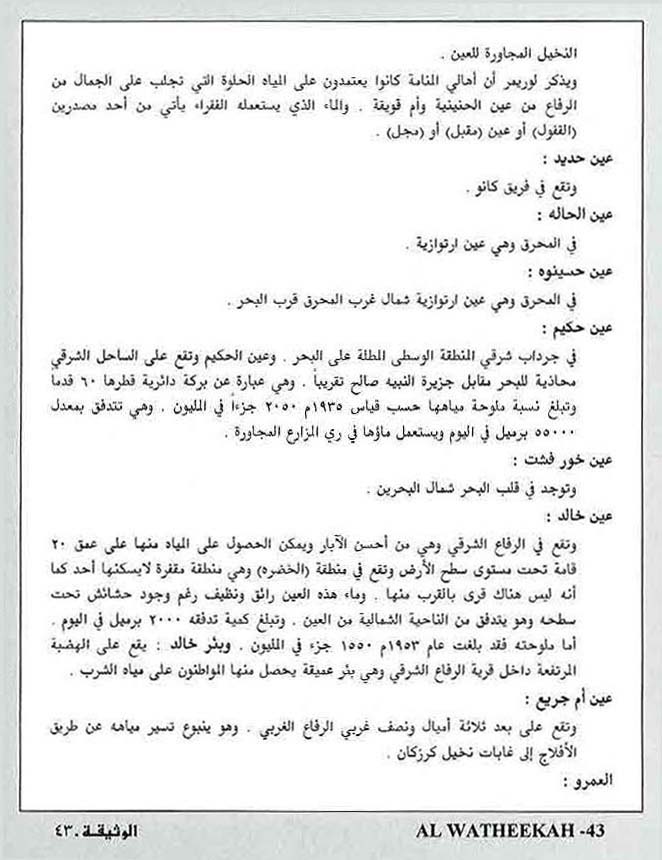 النخيل المجاورة للعين .
ويذكر لوريمر أن أهالي المنامة كانوا يعتمدون على المياه الحلوة التي تجلب على الجمال من
الرفاع من عين الحنينية وأم قويفة . والماء الذي يستعمله الفقراء يأتي من أحد مصدرين
(القفول) أو عين (مقبل) أو (مجل) .
عين حديد :
وتقع في فريق كانو .
عين الحاله :
في المحرق وهي عين ارتوازية .
عين حسينوه :
في المحرق وهي عين ارتوازية شمال غرب المحرق قرب البحر .
عين حكيم :
في جرداب شرقي المنطقة الوسطى المطلة على البحر . وعين الحكيم وتقع على الساحل الشرقي
محاذية للبحر مقابل جزيرة النبيه صالح تقريباً . وهي عبارة عن بركة دائرية قطرها ٦٠ قدماً
وتبلغ نسبة ملوحة مياهها حسب قياس ١٩٣٥م ٢٠٥٠ جزءاً في المليون . وهي تتدفق بمعدل
٥٥٠٠٠ برميل في اليوم ويستعمل ماؤها في ري المزارع المجاورة .
عين خور فشت :
وتوجد في قلب البحر شمال البحرين .
عين خالد :
وتقع في الرفاع الشرقي وهي من أحسن الآبار ويمكن الحصول على المياه منها على عمق ٢٠
قامة تحت مستوى سطح الأرض وتقع في منطقة (الخضره) وهي منطقة مقفرة لايسكنها أحد كما
أنه ليس هناك قرى بالقرب منها . وماء هذه العين رائق ونظيف رغم وجود حشائش تحت
سطحه وهو يتدفق من الناحية الشمالية من العين . وتبلغ كمية تدفقه ٢٠٠٠ برميل في اليوم .
أما ملوحته فقد بلغت عام ١٩٥٣م ١٥٥٠ جزء في المليون . وبئر خالد : يقع على الهضبة
المرتفعة داخل قرية الرفاع الشرقي وهي بئر عميقة يحصل منها المواطنون على مياه الشرب .
عين أم جريع :
وتقع على بعد ثلاثة أميال ونصف غربي الرفاع الغربي . وهو ينبوع تسير مياهه عن طريق
الأفلاج إلى غابات نخيل كرزكان .
العمرو :
الوثيقة . ٤٣
AL WATHEEKAH -43